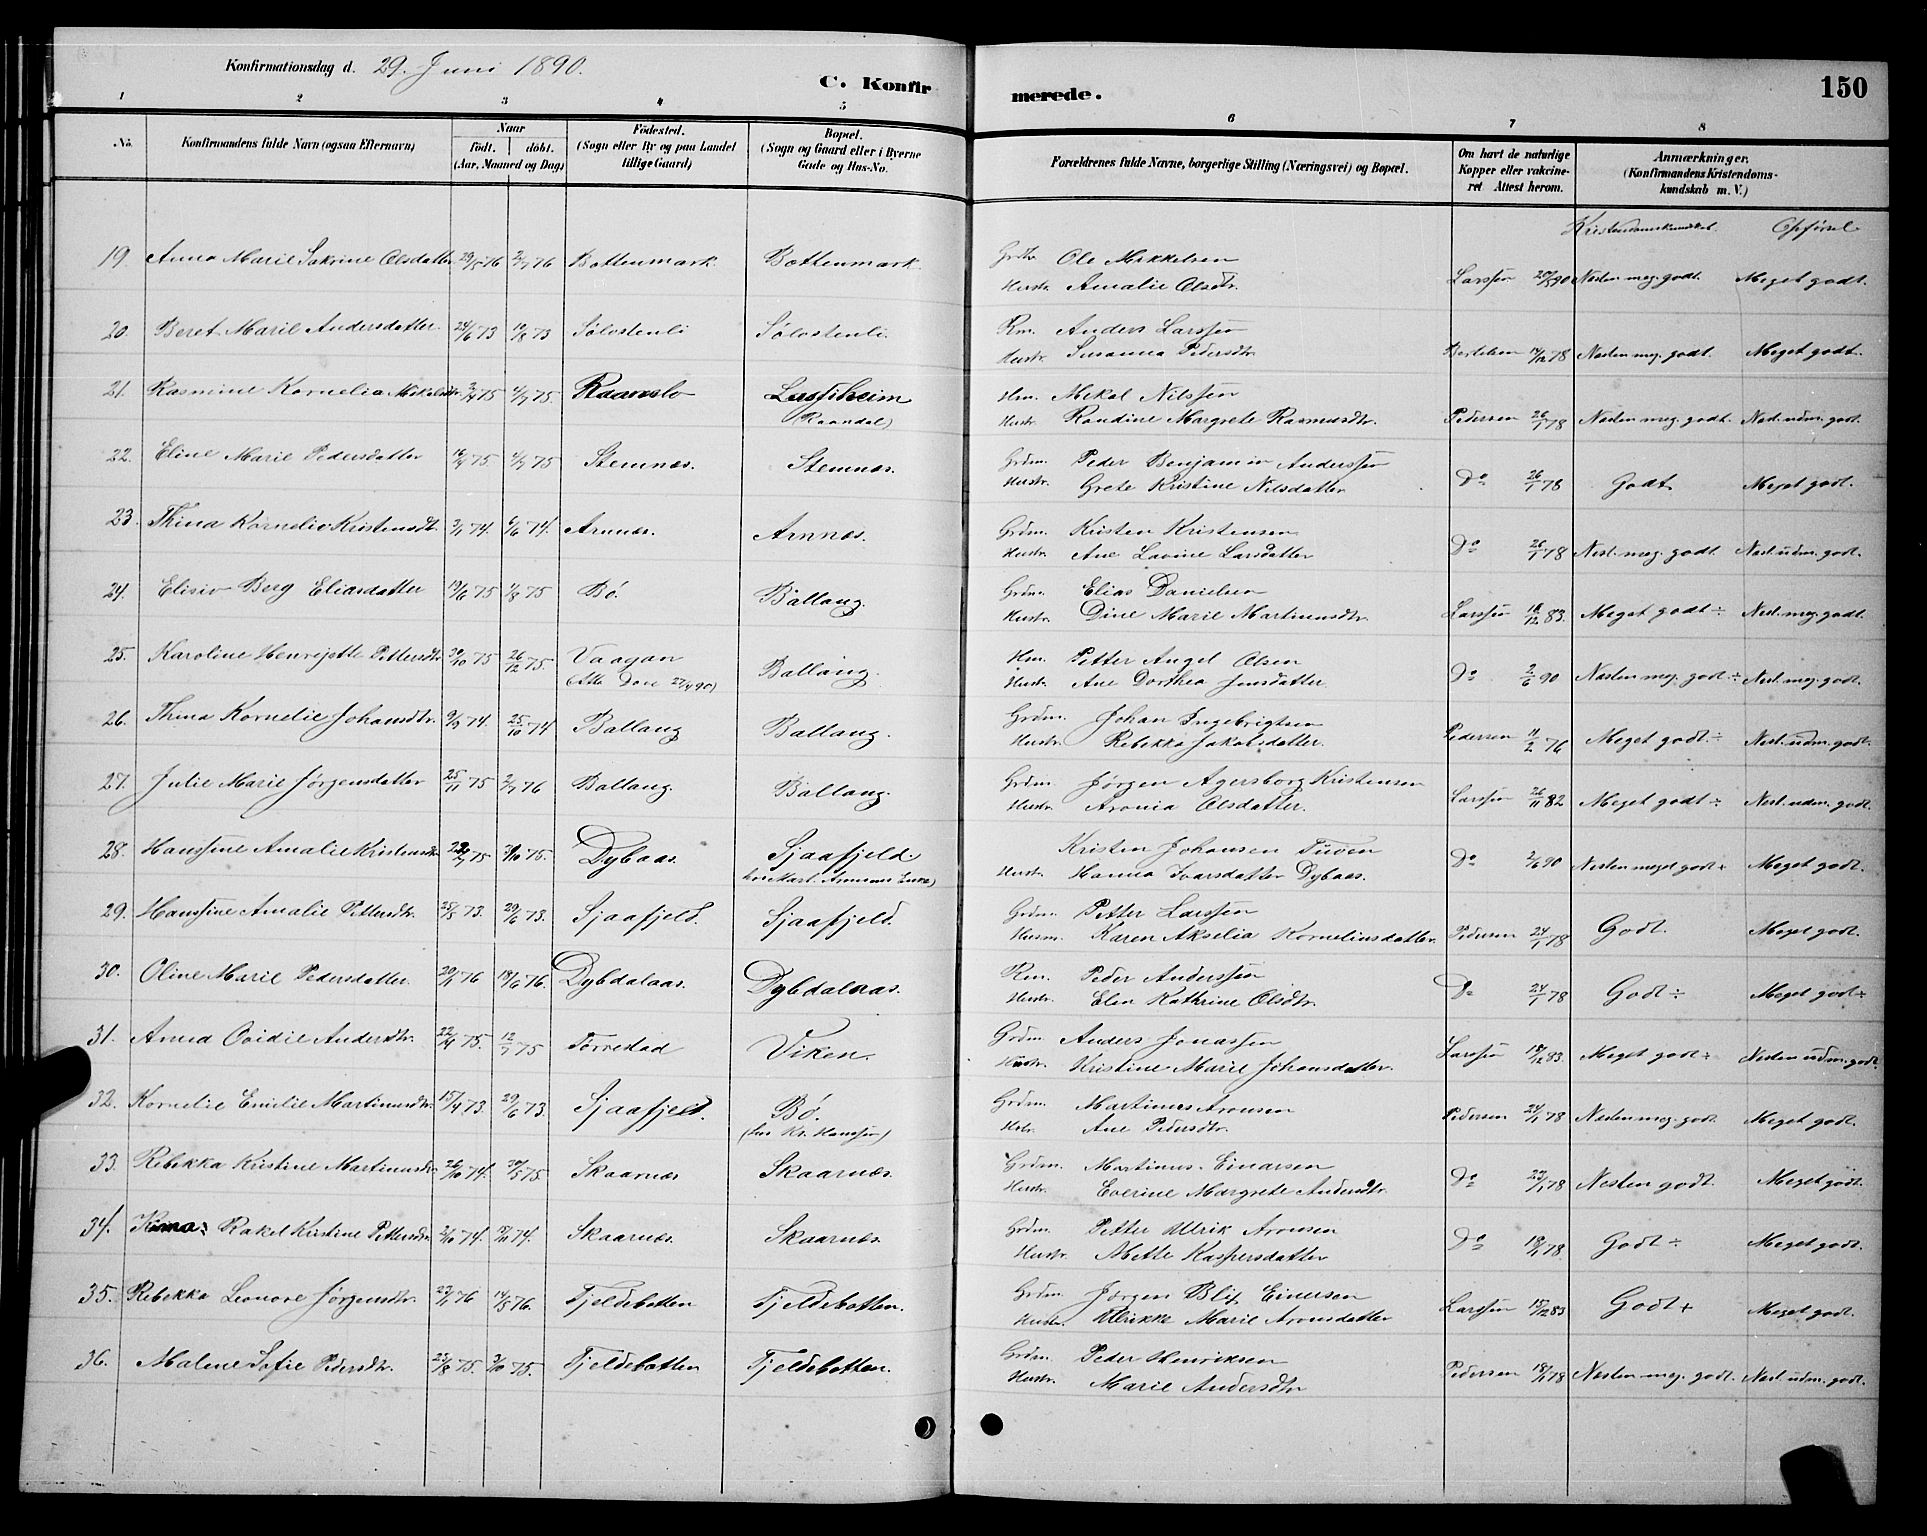 Konfirmationsdag d. 29. Juni 1890.
C. Konfir
merede.
150
1 2 3 4 5 6 7 8
No. Konfirmandens fulde Navn (ogsaa Efternavn) Naar født. døbt. (Aar, Maaned og Dag) Fødested. (Sogn eller By og paa Landet tillige Gaard) Bopæl. (Sogn og Gaard eller i Byerne Gade og Hus-No. Forældrenes fulde Navne, borgerlige Stilling (Næringsvei) og Bopæl. Om havt de naturlige Kopper eller vakcineret Attest herom. Anmærkninger. (Konfirmandens Kristendomskundskab m. V.)
Kristendomskundskab. Opførsel
19. Anna Marie Sakrine Olsdatter 29/5 76 2/7 76 Bottenmark. Bottenmark. Grdbr. Ole Mikkelsen
Hustr. Amalie Olsdtr. Larssen 20/5 90 Nesten meg. godt. Meget godt.
20. Beret Marie Andersdatter 24/6 73 10/8 73 Sølostenli Sølostenli. Rm. Anders Larssen
Hustr. Susanna Pedersdtr. Bertelsen 14/12 78 Nesten meg. godt. Meget godt.
21. Rasmine Kornelia Mikalsdtr. 2/4 75 4/7 75. Raanslo Lussiheim Hm. Mekal Nilssen
(Raandal) Hustr. Randine Margrete Rasmusdtr. Pedersen 26/1 78 Nesten meg. godt. Nest. udm. godt.
22. Eline Marie Pedersdatter 16/4 75 4/7 75 Stemnæs. Stemnæs. Grdm. Peder Benjamin Anderssen
Hustr. Grete Kristine Nilsdatter Do 26/1 78 Godt Meget godt.
23. Thina Kornelie Kristensdt. 3/1 74. 6/6 74. Arnnæs. Arnnæs. Grdm. Kristen Kristensen
Hustr. Ane Lovine Larsdatter Do 26/1 78 Nest. meg. godt. Nest. udm. godt.
24. Elisiv Berg Eliasdatter 19/6 75 1/8 75 Bø. Ballang. Grdm. Elias Danielsen
Hustr. Dine Marie Martinusdtr. Larssen 18/12 83. Meget godt ÷ Nest. meg. godt
25. Karoline Henrijette Pettersdtr 30/10 75 26/12 75. Vaagan Ballang. Hm. Petter Angel Olsen
(Att. Dove 27/4 90) Hustr. Ane Dorthea Jensdatter. Do 2/6 90 Nesten meg. godt ÷ Nest. meg. godt.
26. Thina Kornelie Johansdtr. 9/9 74. 25/10 74 Ballang Ballang. Grdm. Johan Ingebrigtsen
Hustr. Rebekka Jakobsdatter. Pedersen 11/2 76 Meget godt. ÷ Nest. udm. godt.
27. Julie Marie Jørgensdatter 25/11 75 2/7 76 Ballang. Ballang. Grdm. Jørgen Agersborg Kristensen
Hustr. Aronia Olsdatter. Larssen 26/11 82 Meget godt ÷ Nest. udm. godt.
28. Hanssine Amalie Kristensdtr 75 /10 75. Dybaas. Sjaafjeld. Kristen Johansen Tuven
Hustr. Hanna Ivarsdatter Dybaas. Do 2/6 90 Nesten meget godt + Meget godt.
29. Hanssine Amalie Pettersdtr. 25/5 73. 29/6 73. Sjaafjeld. Sjaafjeld. Grdm. Petter Larssen
Husm. Karen Akselia Korneliusdatter. Pedersen 24/1 78 Godt. Meget godt.
30. Oline Marie Pedersdatter. 20/1 76 18/6 76. Dybdalaas. Dybdalaas. Rm. Peder Anderssen
Hustr. Elen Kathrine Olsdtr. Do 24/1 78 Godt ÷ Meget godt ÷
31. Anna Ovidie Andersdtr. 22/4 75. 12/7 75 Torrestad Viken. Grdm Anders Jonassen
Hustr. Kristine Marie Johansdatter. Larssen 18/12 83. Meget godt ÷ Nesten udm. godt.
32. Kornelie Emilie Martinusdtr. 15/4 73. 29/6 73. Sjaafjeld. Bø. Grdm. Martinus Aronsen
(hos Kr. Hanssen) Hstr. Ane Pedersdtr. Pedersen 24/1 78 Nesten meg. godt. Meget godt.
33. Rebekka Kristine Martinusdtr 26/10 74. 30/5 75. Skaarnæs Skaarnæs. Grdm. Martinus Einarsen
Hustr. Everine Margrete Andersdtr. Do 23/1 78 Nesten godt. Meget godt.
34. Rakel Kristine Pettersdtr. 2/10 74. 18/11 74. Skaarnæs. Skaarnæs. Grdm. Petter Ulrik Aronsen
Hustr. Mette Kaspersdatter Do 18/1 78. Godt ÷ Meget godt.
35. Rebekka Leonore Jørgensdtr. 23/1 76 14/5 76. Fjeldebotten Fjeldebotten. Grdm. Jørgen Blix Einersen
Hustr. Ulrikke Marie Aronsdatter Larssen 15/12 83 Godt + Meget godt.
36. Malene Sofie Pedersdtr. 25/8 75. 3/10 75. Fjeldebotten Fjeldebotten. Grdm. Peder Henriksen
Hustr. Marie Andersdtr Pedersen 18/1 78 Nesten meg. godt. Nest. udm. godt.